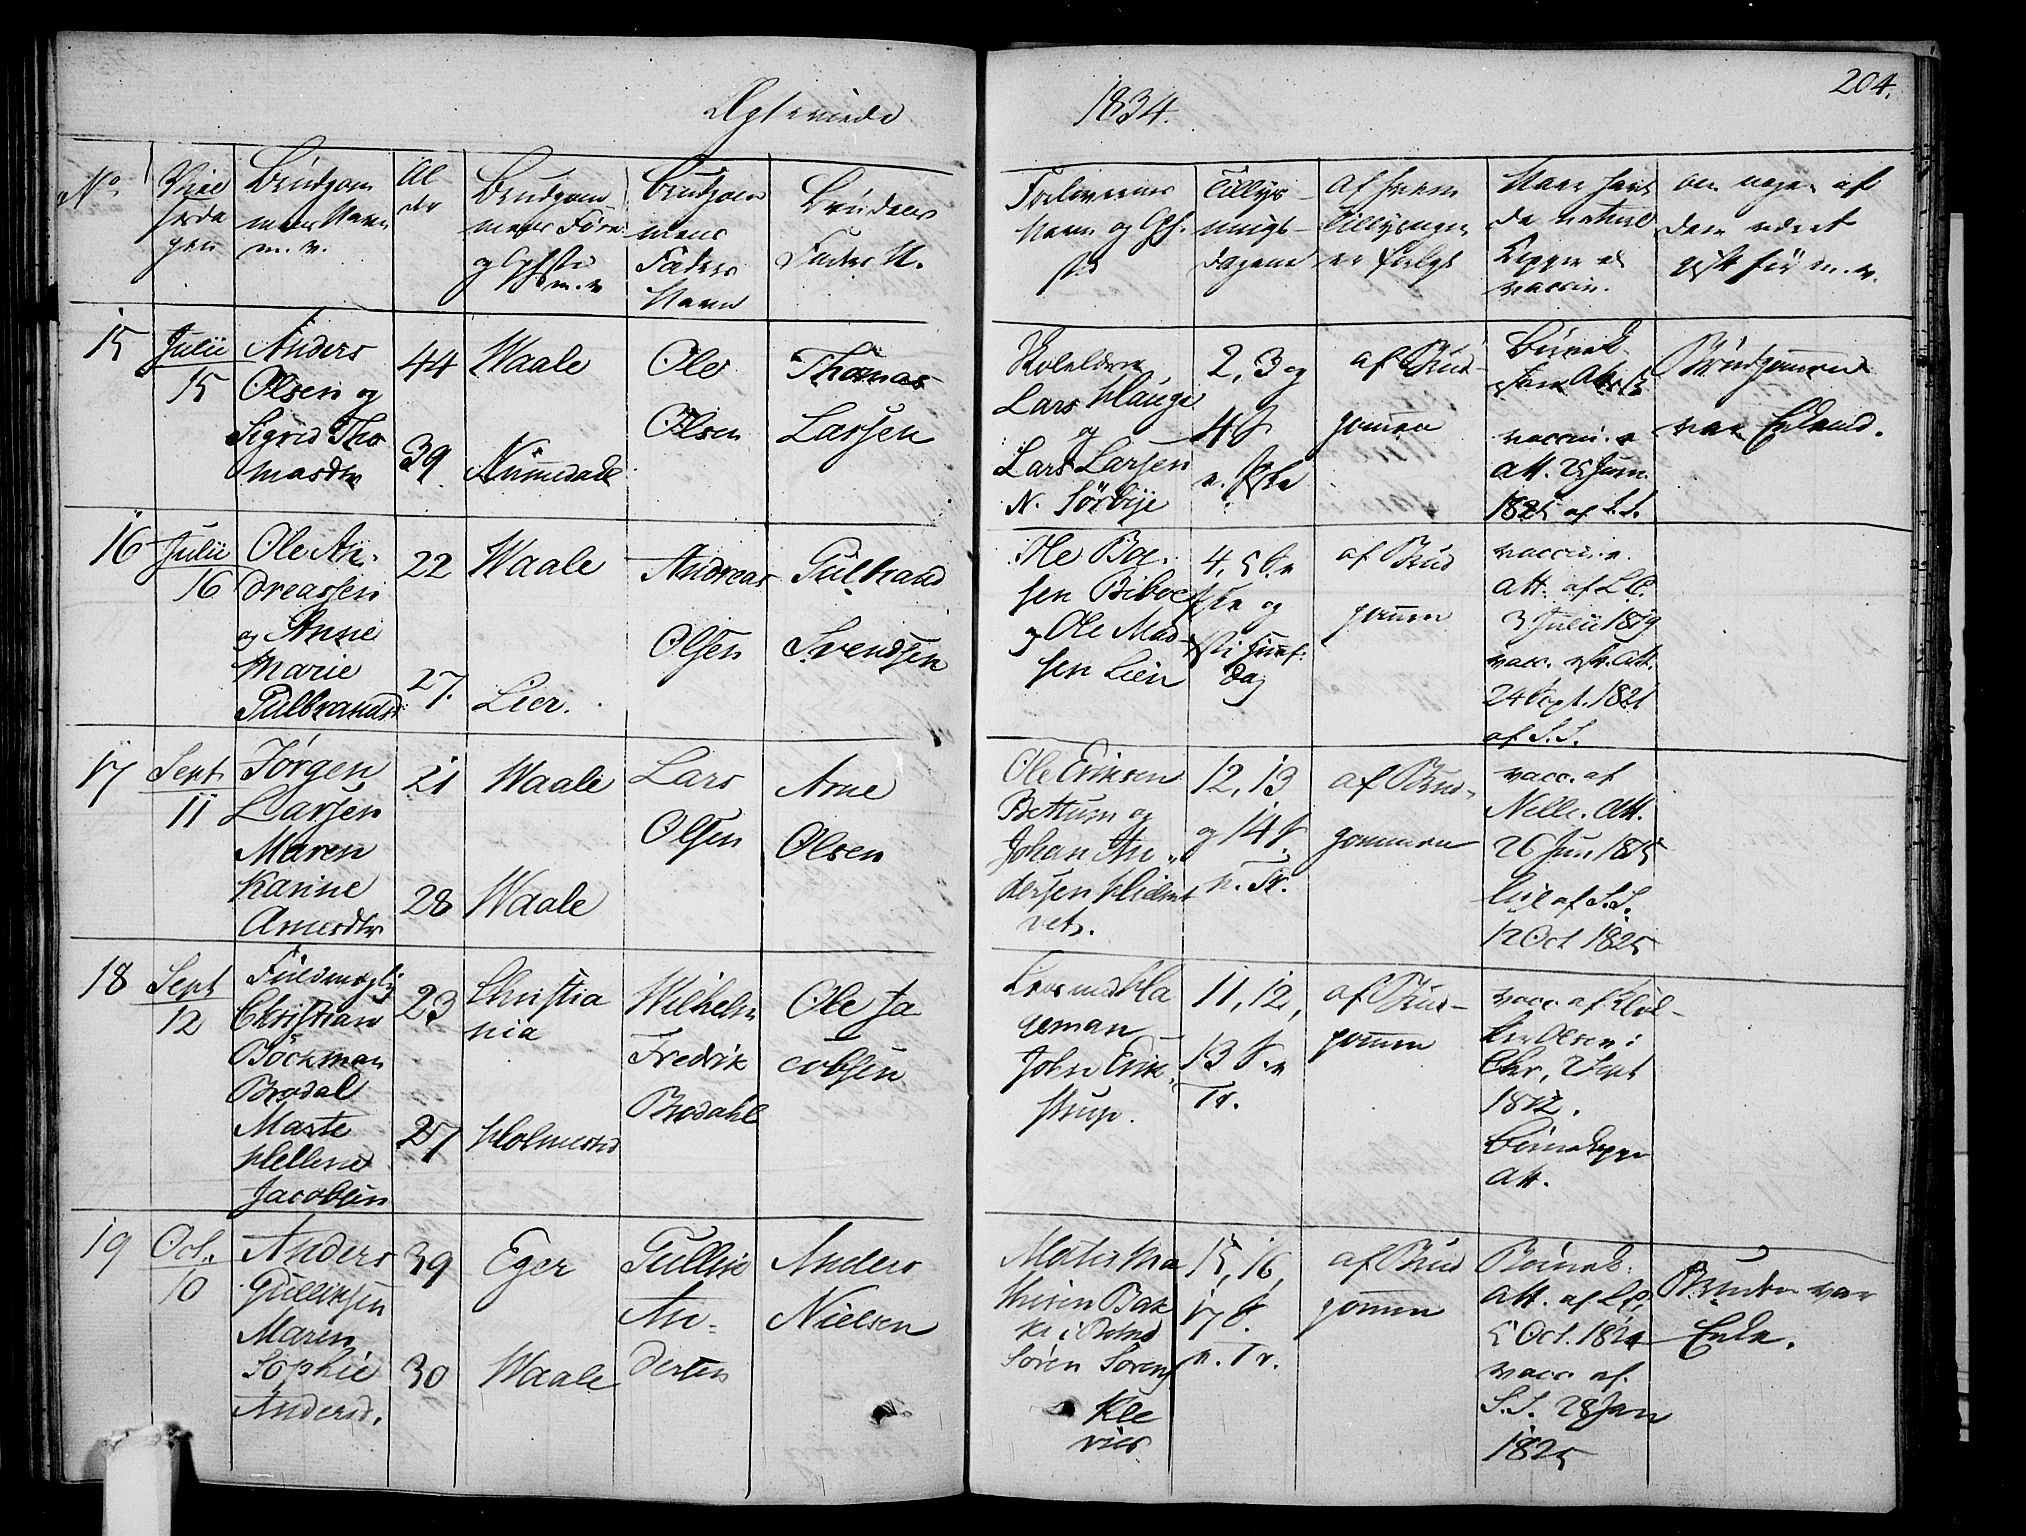 Ægteviede
1834.
204.
No
Vielsesdagen
Brudgommens Navn m. v.
Alder
Brudgommens Føde og Opholdsst. m. v
Brudgommens Faders Navn
Brudens Faders N.
Forlovernes Navn og Oph. st.
Tillysningsdagene
af hvem Tillysningen er forlangt
Have havt de naturl. Kopper el. vaccin.
om nogen af dem været gift før m. v.
15
Julii
15
Anders
Olsen og
Sigrid Tho
masdtr
44
39
Waale
Nummedal
Ole
Olsen
Thomas
Larsen
Skoleldrer
Lars Hauge
og
Lars Larsen
N. Sörbÿe
2, 3 og
4 S.
af Brud-
gommen
vaccin. e
Att. 25 Juni
1825 af S.S.
Brudgommen
var Enkemd.
16
Julii
16
Ole An-
dreassen
og Anne
Marie
Gulbrandsd
22
27.
Waale
Lier.
Andreas
Olsen
Gulbrand
Svendsen
Ole
sen
og Ole Mad
sen Lien
4, 5 S. e
og
Dag
af Brud
gommen
vaccin. e.
Att. af
3 Julii 1819
vacc. Att.
24 Sept. 1821
af S.S.
17
Sept.
11
Jørgen
Larsen
Maren
Karine
Arnesdtr
21
28
Waale
Waale
Lars
Olsen
Arne
Olsen
Ole Eriksen
Bettum og
Johan An
dersen
12, 13
og 14 S.
e. Tr.
af Brud-
gommen
vacc. af
Att.
26 Jun 1815
af S.S.
12 Oct 1825
18
Sept
12
Fuldmægtig
Christian
Böckman
Brodal
Marte
Hellene
Jacobsen
23
27
Christia
nia
Holmestrd
Wilhelm
Fredrik
Brodahl
Ole Ja
cobsen
Ha
geman
John Erik
strup.
11, 12,
13 S. e
Tr.
af Brud-
gommen
vacc. af
Olsen i
Chr, 2 Sept
1812.
Börnekopper
Att.
19
Oct.
10
Anders
Gulliksen
Maren
Sophie
Andersd.
39
30
Eger
Waale
Gullik
An-
dersen
Anders
Nielsen
Sören Sörens
Kle
ver
15, 16,
17 S.
e. Tr.
af Brud
gommen
Börnek.
Att. af
5 Oct. 1824
vacc. af.
S.S. 28 Jan
1825
Bruden var
Enke.